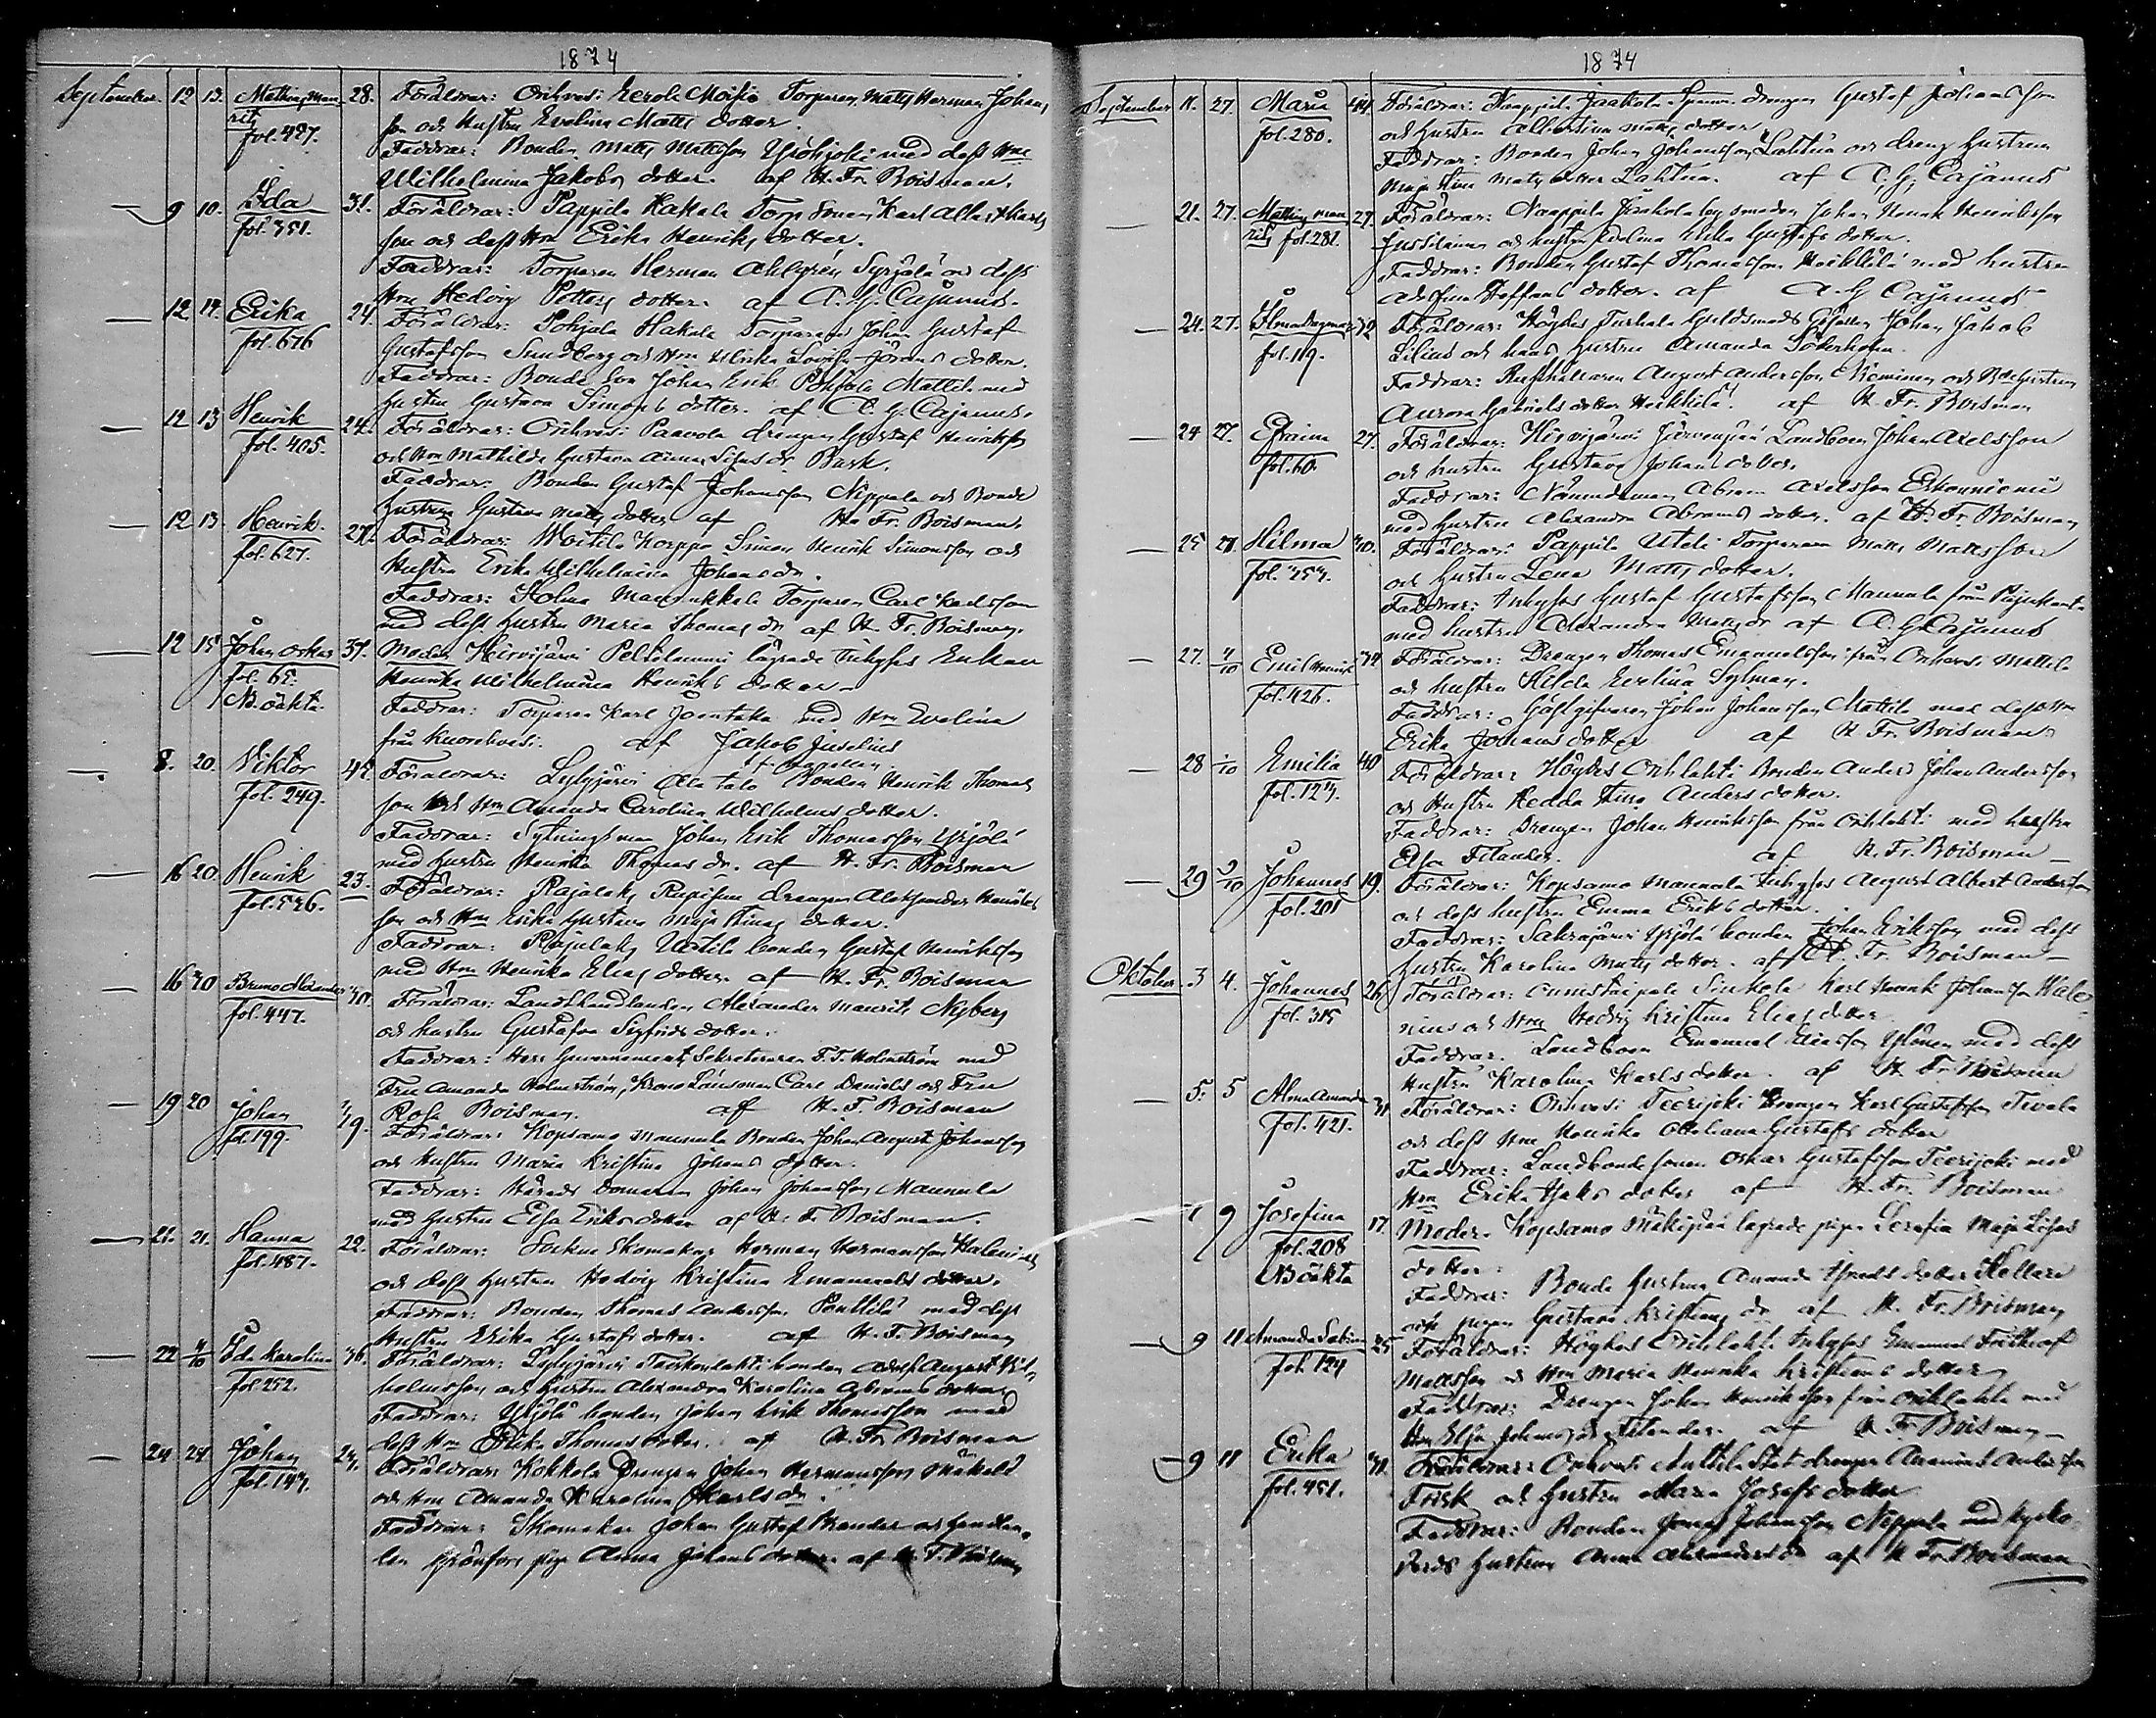 1874
September. 12 13. Mathias Mau- 28. Föräldrar: Orihvesi Eerola Moisio Torparen Matts Herman Johans
ritz son och Hustru Evelina Matts dotter.
fol. 427. Faddrar: Bonden Matts Mattsson Yröhjoki med dess Hru
Wilhelmina Jakobs dotter. af H. Fr. Boisman.
— 9 10. Ida 31. Föräldrar: Pappila Kakola Torp Karl Karls
fol. 351. son och dess Hru Erika Henriks dotter.
Faddrar: Torparen Herman Ahlgrén Syrjälä och dess
Hru Hedvig Petters dotter. af A. G. Cajanus.
— 12 14. Erika 24. Föräldrar: Pohjala Hakala Torparen Johan Gustaf
fol. 616 Gustafsson Sundberg och Hru Ulrika Lovisa Jörans dotter.
Faddrar: Bonde Son Johan Erik Pohjola Mattila med
Hustru Gustava Simons dotter. af A. G. Cajanus.
— 12 13 Henrik 24. Föräldrar: Orihvesi Paavola drengen Gustaf Henriksson
fol. 405. och Hru Mathilda Gustava dr Bask.
Faddrar: Bonden Gustaf Johansson Neppala och Bonde
Hustrun Gustava Matts dotter af H. Fr. Boisman.
— 12 13. Henrik. 27. Föräldrar: Woitila Korppo Simon Henrik Simonsson och
fol. 627. Hustru Erika Wilhelmina Johans dr.
Faddrar: Holma Torparen Carl Karlsson
med dess Hustru Maria Thomas dr af H. Fr. Boisman.
— 12 15 Johan Oskar 31. Moder Hirvijärvi Peltoniemi lägrade Inhyses Enkan
fol. 65. Henrika Wilhelmina Henriks dotter—
NB. oäkta. Faddrar: Torparen Karl Joentaka med Hru Evelina
från Kuorehvesi. af Jakob Juselius
— 8. 20. Viktor 42 Föräldrar: Lyhyjärvi Ala talo Bonden Henrik Thomas
fol. 249. son och Hru Amanda Carolina Wilhelms dotter.
Faddrar: Sytningsman Johan Erik Thomasson Yrjölä
med Hustru Henrika Thomas dr. af H. Fr. Boisman
— 16 20. Henrik 23. Föräldrar: Rajalaks drengen Alexander Henriks
fol. 526. son och Hru Erika Gustava Maja Stinas dotter.
Faddrar: Rajalaks Uotila bonden Gustaf Henriksson
med Hru Henrika Elias dotter. af H. Fr. Boisman
— 16 20 Bruno Alexander 30. Föräldrar: Landthandlanden Alexander Maurits Nyberg
fol. 447. och Hustru Gustafva Sigfrids dotter.
Faddrar: Herr Guvernements Sekreteraren F. T. Holmström med
Fru Amanda Holmström, Krono Länsman Carl Daniels och Fru
Rosa Boisman. af H. F. Boisman
— 19 20 Johan 19. Föräldrar: Kopsamo Mannula Bonden Johan August Johansson
fol. 199. och Hustru Maria Kristina Johans dotter.
Faddrar: Härads Domaren Johan Johansson Mannula
med Hustru Elsa Eriks dotter af H. Fr. Boisman.
— 21. 21. Hanna 22. Föräldrar: Socken Skomakar Herman Hermansson Halenius
fol. 487. och dess Hustru Hedvig Kristina Emanuels dotter.
Faddrar: Bonden Thomas Andersson Penttilä med dess
Hustru Erika Gustafs dotter. af H. F. Boisman
— 22 4/10 Ida Karolina 36. Föräldrar: Lyhyjärvi bonden Adolf August Wil-
fol 252. helmsson och Hustru Alexandra Karolina Abrams dotter
Faddrar: Yrjölä bonden Johan Erik Thomasson med
dess Hru Erika Thomas dotter. af H. Fr. Boisman
— 24 24 Johan 24. Föräldrar: Kokkola Drengen Johan Hermansson Mäkelä
fol. 147. och Hru Amanda Karolina Karls dr.
Faddrar: Skomakar Johan Gustaf och
pige Anna Johans dotter af H. F. Boisman
1874
September 11. 27. Maria 44 Föräldrar: Pappila Jaakola drengen Gustaf Johansson
fol. 280. och Hustru Albertina Matts dotter
Faddrar: Bonden Johan Johansson Lahtua och dreng Hustrun
Maja Stina Matts dotter Lahtua. af A. G. Cajanus
— 21. 27. Mathias Mau- 27 Föräldrar: Pappila Jaakola Johan Henrik Henriksson
rits fol. 281. och hustru Adolfina Erika Gustafs dotter.
Faddrar: Bonden Gustaf Thomasson Heikkilä med hustru
Adolfina Steffans dotter. af A. G. Cajanus
— 24. 27. Ilma Dagmar 32 Föräldrar: Högdes Turkala Guldsmeds Gesällen Johan Jakob
fol. 119. Lilius och hans Hustru Amanda Söderholm.
Faddrar: Rusthållaren August Andersson Nieminen och Bde Hustrun
Aurora Gabriels dotter Heikkilä. af H. Fr. Boisman
— 24 27. Efraim 27. Föräldrar: Hirvijärvi Järvenpää Landboen Johan Axelsson
fol. 60. och hustru Gustava Johans dotter.
Faddrar: Nämndeman Abram Axelsson Eskonniemi
med Hustru Alexandra Abrams dotter. af H. Fr. Boisman
— 25 27. Hilma 30. Föräldrar: Pappila Uteli Torparen Matts Mattsson
fol. 357. och Hustru Lena Matts dotter.
Faddrar: Inhyses Gustaf Gustafsson Mannula från
med hustru Alexandra Matts dr af A. G. Cajanus
— 27. 4/10 Emil Henrik 34 Föräldrar: Drengen Thomas Emanuelsson från Orihvesi Mattila
fol. 426. och hustru Hilda Evelina Sylman.
Faddrar: Gästgifvaren Johan Johansson Mattila med dess Hru
Erika Johans dotter af H. Fr. Boisman.
— 28 1/10 Emilia 40 Föräldrar: Högdes Orihlahti Bonden Anders Johan Andersson
fol. 127. och Hustru Hedda Stina Anders dotter.
Faddrar: Drengen Johan Henriksson från Orihlahti med hustru
Elsa Filander. af H. Fr. Boisman—
— 29 3/10 Johannes 19. Föräldrar: Kopsamo Mannula Inhyses August Albert Andersson
fol. 201 och dess hustru Emma Eriks dotter.
Faddrar: Sahrajärvi Yrjölä bonden Johan Eriksson med dess
Hustru Karolina Matts dotter. af H. Fr. Boisman—
Oktober 3 4. Johannes 26 Föräldrar: Sinkola Karl Henrik Johansson Hale-
fol. 315 nius och Hru Hedvig Kristina Elias dotter
Faddrar. Landboen Emanuel Eliasson Ylönen med dess
Hustru Karolina Karls dotter. af H. Fr. Boisman
— 5. 5 Alma Amanda 31 Föräldrar: Orihvesi Teerijoki Drengen Karl Gustafsson Tevala
fol. 421. och dess Hru Henrika Gustafs dotter
Faddrar: Landbonde sonen Oskar Gustafsson Teerijoki med
Hru Erika Isaks dotter af H. Fr. Boisman
— 7 9 Josefina 17. Moder. Kopsamo Mäkipää lägrade pigan Serafia Maja Lisas
fol. 208 dotter.
NB oäkta Faddrar: Bonde Hustrun Amanda dotter Kellari
och pigan Gustava Kristians dr af H. Fr. Boisman
— 9 11 Amanda Sabina 25 Föräldrar: Högdes Orihlahti Inhyses Emanuel Fridthiof
fol. 124 Mattsson och Hru Maria Henrika Kristians dotter
Faddrar: Drengen Johan Henriksson från Orihlahti med
Hru Elsa Johans dr Filander. af H. Fr. Boisman—
— 9 11 Erika 31. Föräldrar: Orihvesi Mattila Stat drengen Ananias Andersson
fol. 451. Frisk och Hustru Maria Josefs dotter
Faddrar: Bonden Johansson Neppala med
värds Hustrun Anna Alexanders dr af H. Fr. Boisman